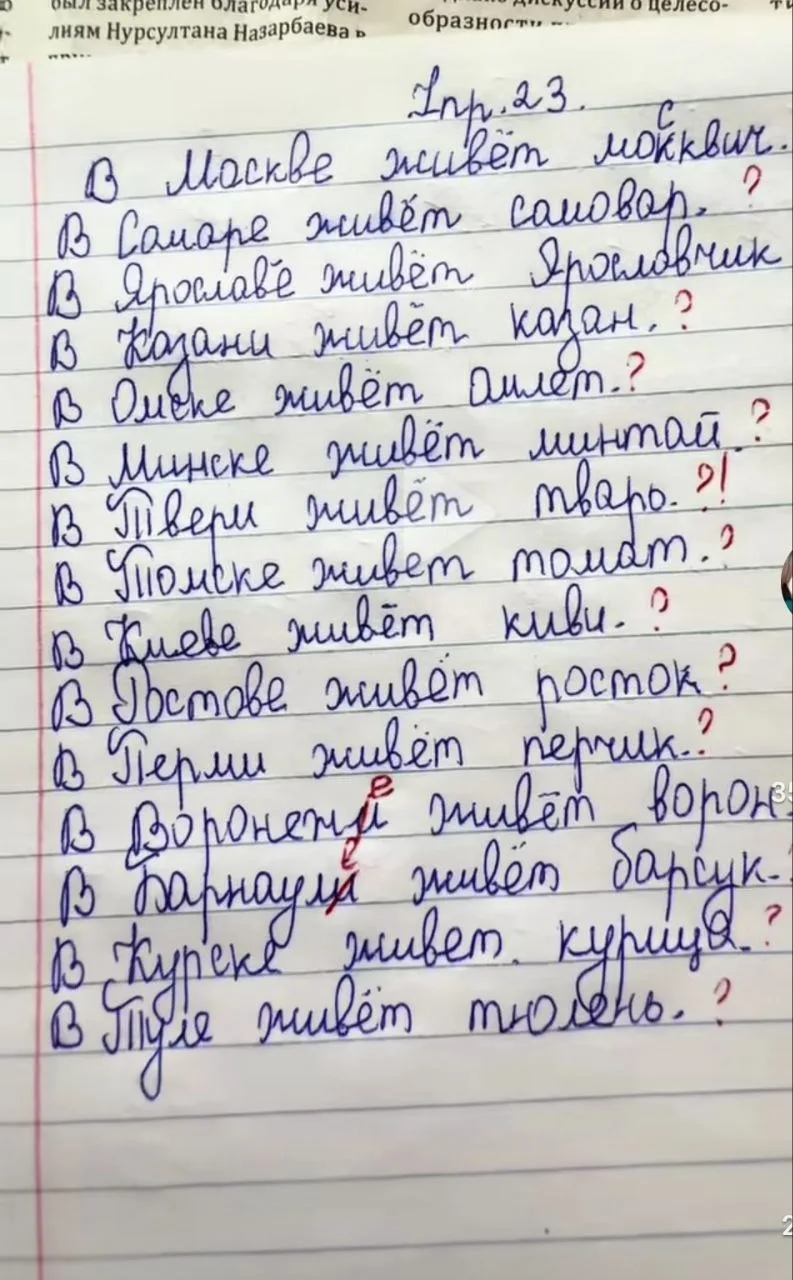 был закреплен благодаря уси-
лиям Нурсултана Назарбаева в
дискуссии о целесо-
образности
Упр. 23.
с
В Москве живёт мокквич.
В Самаре живёт самовар. ?
В Ярославе живёт Ярославчик
В Казани живёт казан. ?
В Омске живёт Омлет. ?
В Минске живёт минтай. ?
В Твери живёт тварь. ?!
В Томске живет томат. ?
В Киеве живёт киви. ?
В Ростове живёт росток ?
В Перми живёт перчик. ?
е
В Воронежи живёт ворон.
е
В Барнаули живёт барсук.
В Курске живет курица. ?
В Туле живёт тюлень. ?